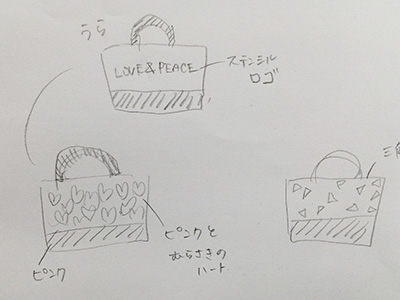 うら
LOVE&PEACE
ステンシル
ロゴ
ピンク
ピンクと
むらさきの
ハート
三角